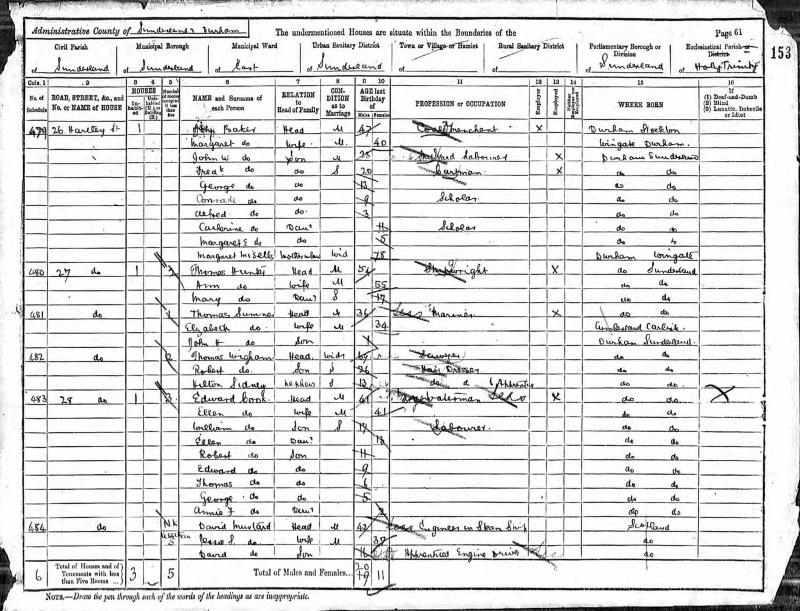 Administrative County of Sunderland & Durham
The undermentioned Houses are situate within the Boundaries of the
Page 61
153
Civil Parish
Municipal Borough
Municipal Ward
Urban Sanitary District
Town or Village or Hamlet
Rural Sanitary District
Parliamentary Borough or Division
Ecclesiastical Parish or District
of Sunderland
of Sunderland
of East
of Sunderland
of
of
of Sunderland
of Holy Trinity
Cols. 1 2 3 4 5 6 7 8 9 10 11 12 13 14 15 16
No. of Schedule
ROAD, STREET, &c., and No. or NAME of HOUSE
HOUSES
NAME and Surname of each Person
RELATION to Head of Family
CONDITION as to Marriage
AGE last Birthday of
Males Females
PROFESSION or OCCUPATION
Employer
Employed
WHERE BORN
If
(1) Deaf-and-Dumb
(2) Blind
(3) Lunatic, Imbecile or Idiot
479 26 Hartley St 1 Baker Head M 47 Coal Merchant X Durham Stockton
Margaret do Wife M 40 Wingate Durham
John W do Son 25 Labourer X Durham Sunderland
Fredk do do S 20 Cartman X do do
George do do 13 do do
Conrade do do 9 Scholar do do
Alfred do do 3 do do
Catherine do Daur 11 Scholar do do
Margaret E do do 5 do do
Margaret Mother in law Wid 78 Durham Wingate
480 27 do 1 Thomas Hunter Head M 54 Shipwright X do Sunderland
Ann do Wife M 55 do do
Mary do Daur S 17 do do
481 do Thomas Sumner Head M 36 Mariner X do do
Elizabeth do Wife M 34 Cumberland Carlisle
John H do Son Durham Sunderland
482 do Thomas Wigham Head Widr Sawyer do do
Robert do Son S 26 Hair Dresser do do
Hilton Sidney Nephew S 13 do & Apprentice do do
483 28 do 1 Edward Cook Head M 41 Waterman X do do
Ellen do Wife M 41 do do
William do Son S 17 Labourer do do
Ellen do Daur 13 do do
Robert do Son 11 do do
Edward do do 9 do do
Thomas do do 6 do do
George do do 5 do do
Annie F do Daur 2 do do
484 do NK David Head M 42 Engineer in Steam Ship Scotland
Jessie S. do Wife M 38 do
David do Son 16 Apprentice Engine Driver do
6 Total of Houses and of Tenements with less than Five Rooms 3 5 Total of Males and Females... 11
NOTE.—Draw the pen through such of the words of the headings as are inappropriate.